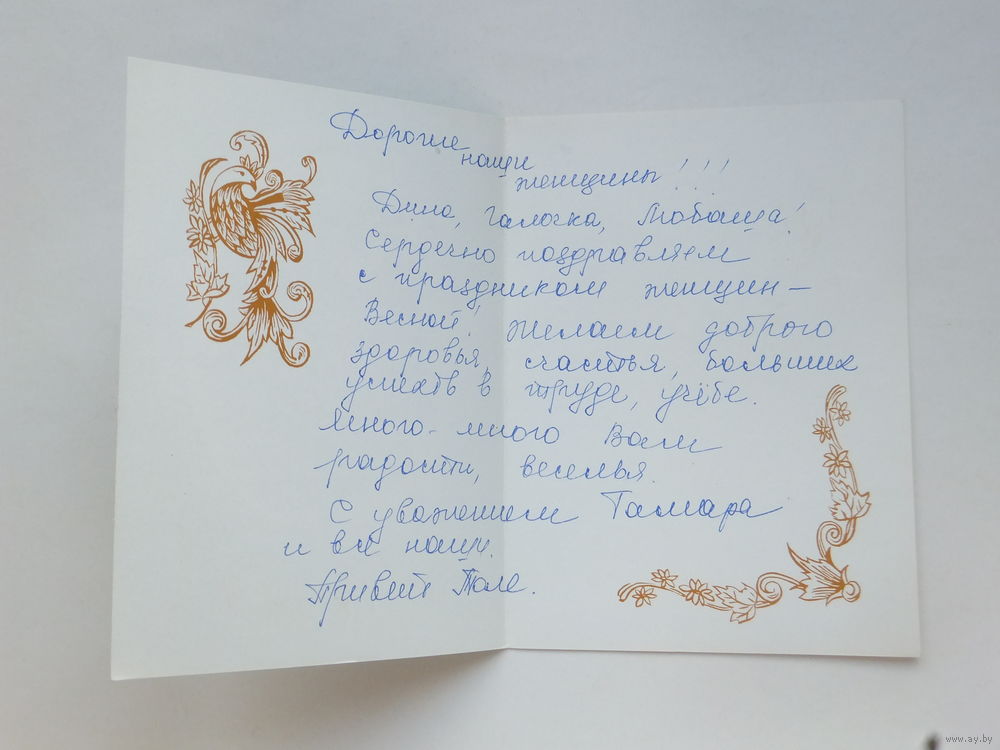 Дорогие
наши
женщины!!!
Дина, Галочка, Любаша!
Сердечно поздравляем
с праздником женщин –
Весной! Желаем доброго
здоровья, счастья, больших
успехов в труде, учёбе.
Много-много Вам
радости, веселья.
С уважением Тамара
и все наши.
Привет Толе.
www.ay.by